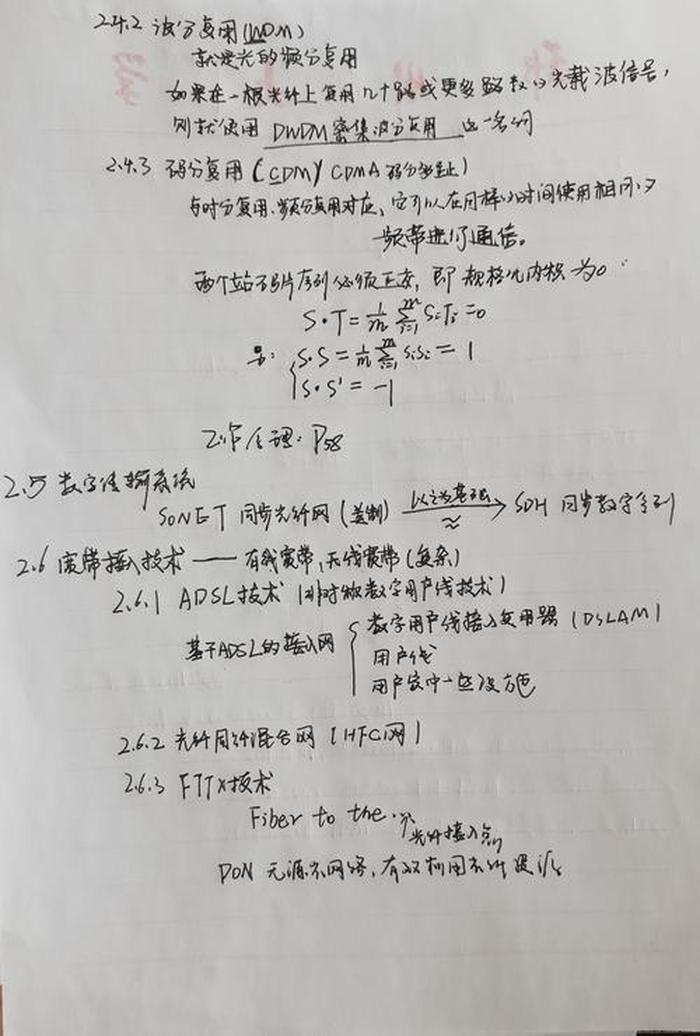 2.4.2 波分复用(WDM)
就是光的频分复用
如果在一根光纤上复用几十路或更多路数的光载波信号,
则就使用 DWDM 密集波分复用 这一名词
2.4.3 码分复用(CDM)/ CDMA 码分多址)
与时分复用、频分复用对应, 它可以在同样的时间使用相同的
频带进行通信。
两个站码片序列必须正交, 即 规格化内积 为0
S·T = 1/m ∑ᵐᵢ₌₁ SᵢTᵢ = 0
S·S = 1/m ∑ᵐᵢ₌₁ SᵢSᵢ = 1
S·S' = -1
工作原理: P58
2.5 数字传输系统
SONET 同步光纤网 (美制) 以之为基础 ≈ → SDH 同步数字系列
2.6 宽带接入技术 —— 有线宽带, 无线宽带 (复杂)
2.6.1 ADSL技术 (非对称数字用户线技术)
基于ADSL的接入网 { 数字用户线接入复用器 (DSLAM)
用户线
用户家中一些设施
2.6.2 光纤同轴混合网 (HFC网)
2.6.3 FTTx技术
Fiber to the ...
光纤接入
PON 无源光网络, 有效利用光纤资源